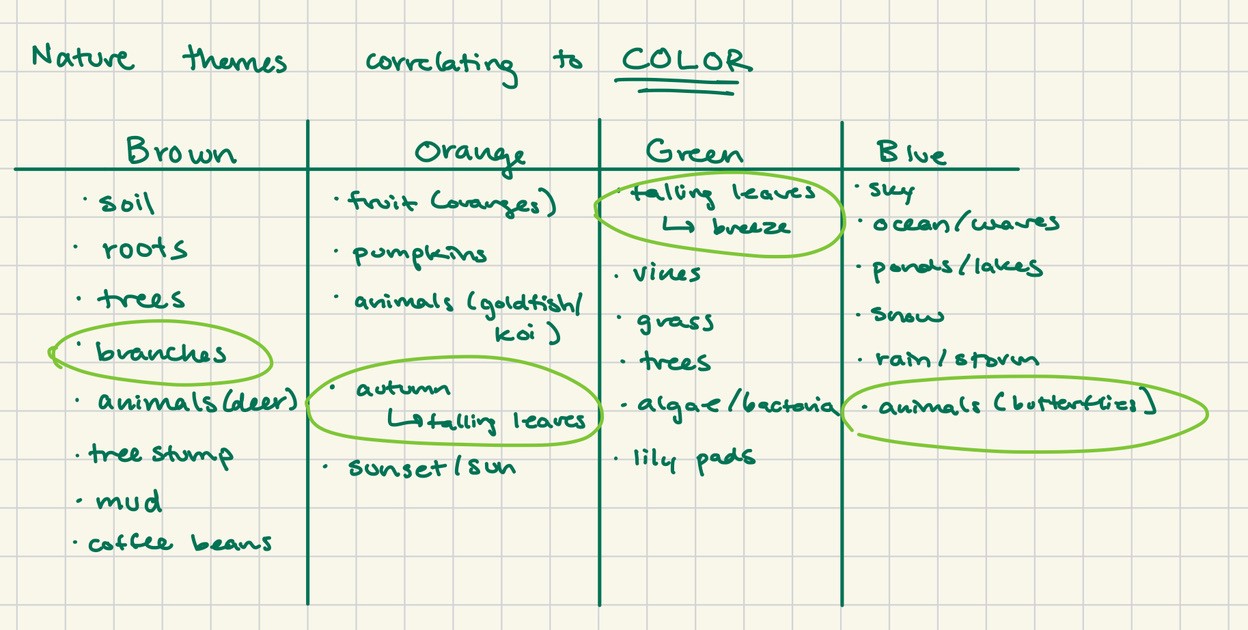 Nature themes correlating to COLOR
Brown
• soil
• roots
• trees
• branches
• animals (deer)
• tree stump
• mud
• coffee beans
Orange
• fruit (oranges)
• pumpkins
• animals (goldfish/
koi)
• autumn
↳ falling leaves
• sunset/sun
Green
• falling leaves
↳ breeze
• vines
• grass
• trees
• algae/bacteria
• lily pads
Blue
• sky
• ocean/waves
• ponds/lakes
• snow
• rain/storm
• animals (butterflies)